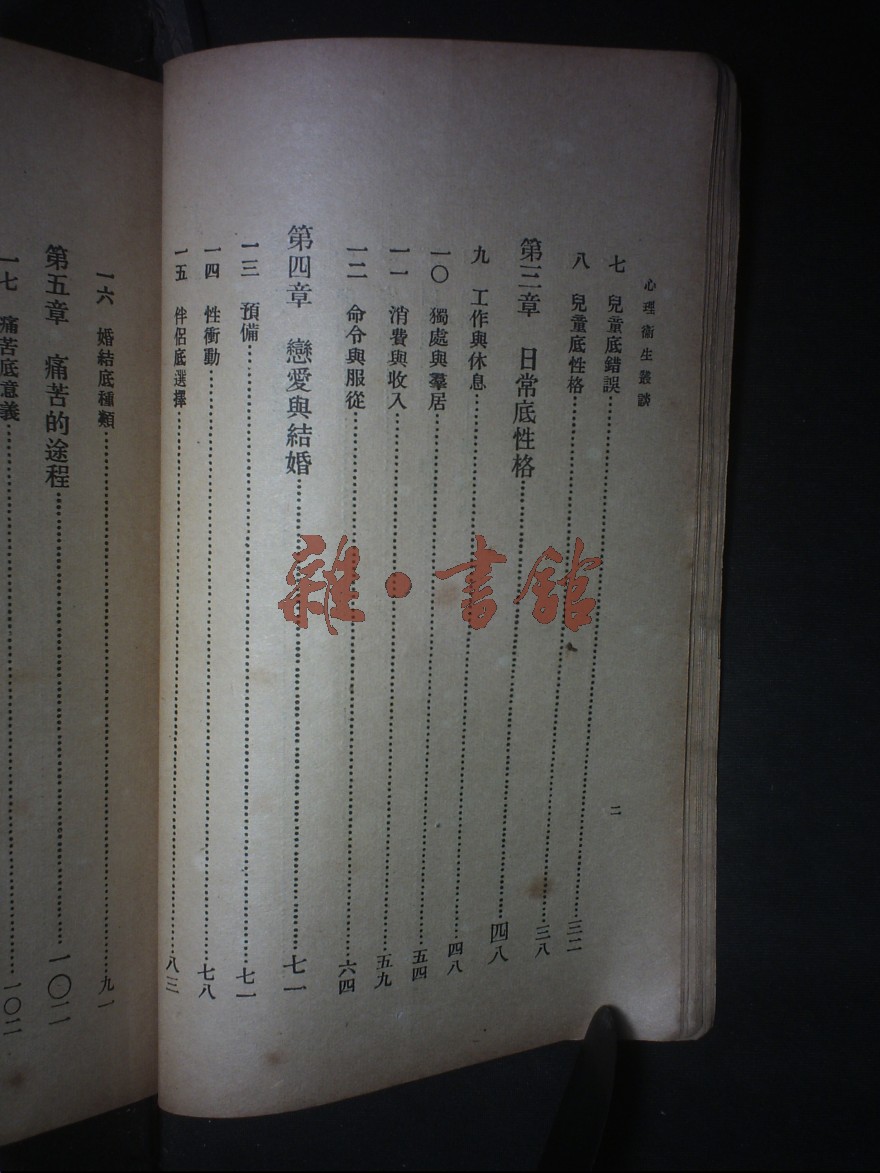 心理衞生叢談
二
七 兒童底錯誤……三二
八 兒童底性格……三八
第三章 日常底性格……四八
九 工作與休息……四八
一〇 獨處與羣居……五四
一一 消費與收入……五九
一二 命令與服從……六四
第四章 戀愛與結婚……七一
一三 預備……七一
一四 性衝動……七八
一五 伴侶底選擇……八三
一六 婚結底種類……九一
第五章 痛苦的途程……一〇二
一七 痛苦底意義……一〇二
雜·書館